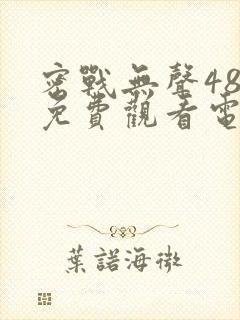 密戰無聲48
免費觀看電
葉諾海微